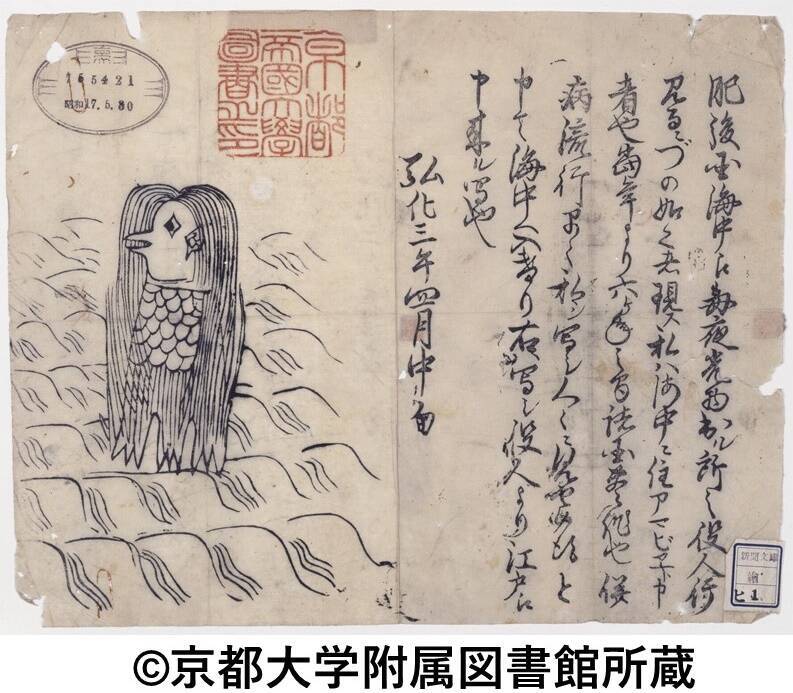 肥後国海中江毎夜光物出ル所之役人行
見るニづの如く者現ス私ハ海中ニ住アマビヱト申
者也當年より六ヶ年之間諸国豊作也併
病流行早々私ヲ写シ人々ニ見セ候得と
申て海中へ入けり右写シ役人より江戸江
申来ル写也
弘化三年四月中旬
京都
帝國大學
圖書之印
昭和17.5.30
新聞文庫
繪
ヒ 1
©京都大学附属図書館所蔵